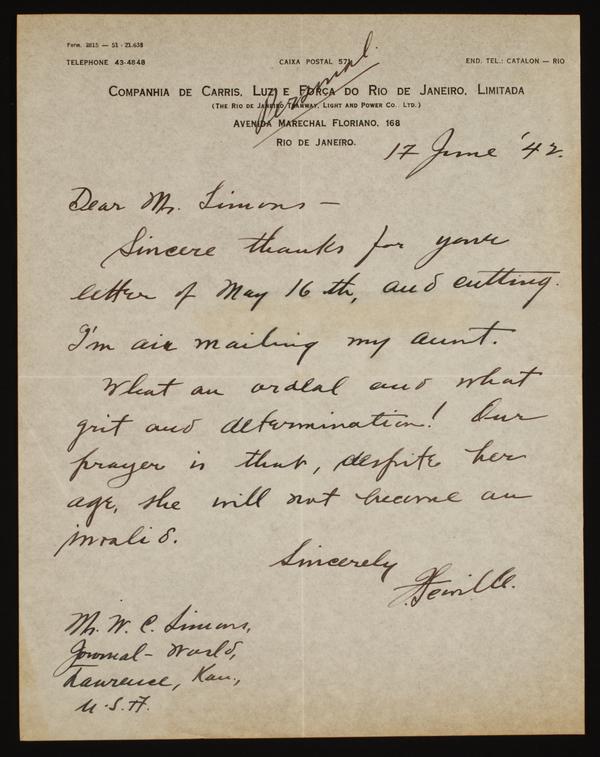 Form. 2815 — 51 - 21.638
TELEPHONE 43-4848
CAIXA POSTAL 571
END. TEL.: CATALON — RIO
Personal.
COMPANHIA DE CARRIS, LUZ E FORÇA DO RIO DE JANEIRO, LIMITADA
(THE RIO DE JANEIRO TRAMWAY, LIGHT AND POWER CO. LTD.)
AVENIDA MARECHAL FLORIANO, 168
RIO DE JANEIRO.
17 June '42.
Dear Mr. Simons —
Sincere thanks for your
letter of May 16 th, and cutting.
I'm air mailing my aunt.
What an ordeal and what
grit and determination! Our
prayer is that, despite her
age, she will not become an
invalid.
Sincerely
Mr. W. C. Simons,
Journal-World,
Lawrence, Kan.,
U.S.A.